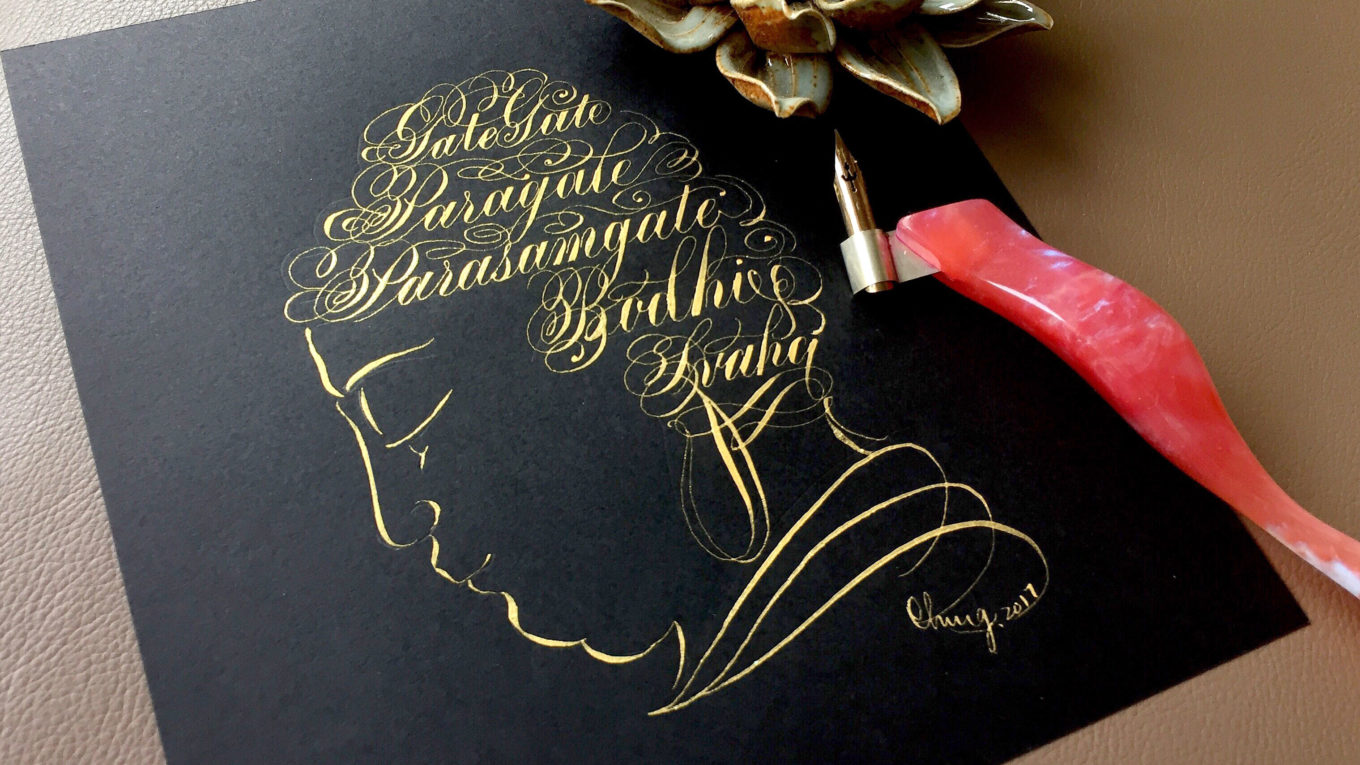 Gate Gate
Paragate
Parasamgate
Bodhi
Svaha
Chung. 2017